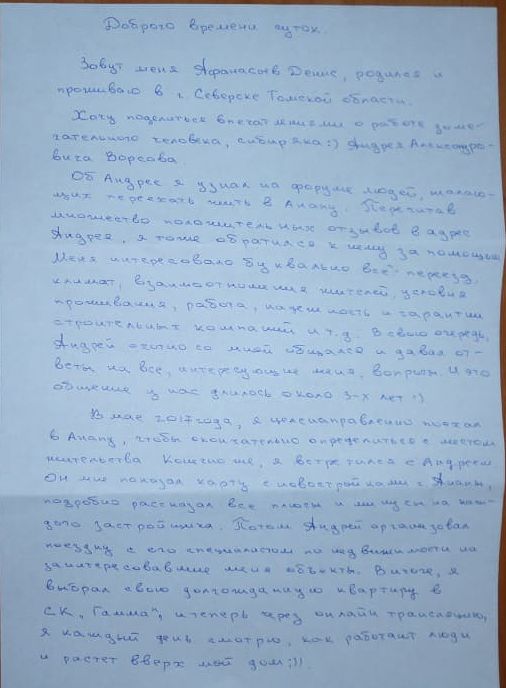 Доброго времени суток.
Зовут меня Афанасьев Денис, родился и
проживаю в г. Северске Томской области.
Хочу поделиться впечатлениями о работе заме-
чательного человека, сибиряка:) Андрея Александро-
вича Ворсова.
Об Андрее я узнал на форуме людей, желаю-
щих переехать жить в Анапу. Перечитав
множество положительных отзывов в адрес
Андрея, я тоже обратился к нему за помощью.
Меня интересовало буквально всё - переезд,
климат, взаимоотношения жителей, условия
проживания, работа, надежность и гарантии
строительных компаний и т.д. В свою очередь,
Андрей охотно со мной общался и давал от-
веты на все, интересующие меня, вопросы. И это
общение у нас длилось около 3-х лет :)
В мае 2017 года, я целенаправленно поехал
в Анапу, чтобы окончательно определиться с местом
жительства. Конечно же, я встретился с Андреем.
Он мне показал карту с новостройками г. Анапы,
подробно рассказал все плюсы и минусы на каж-
дого застройщика. Потом Андрей организовал
поездку с его специалистом по недвижимости на
заинтересовавшие меня объекты. В итоге, я
выбрал свою долгожданную квартиру в
СК „Гамма", и теперь через онлайн трансляцию,
я каждый день смотрю, как работают люди
и растет вверх мой дом;)).